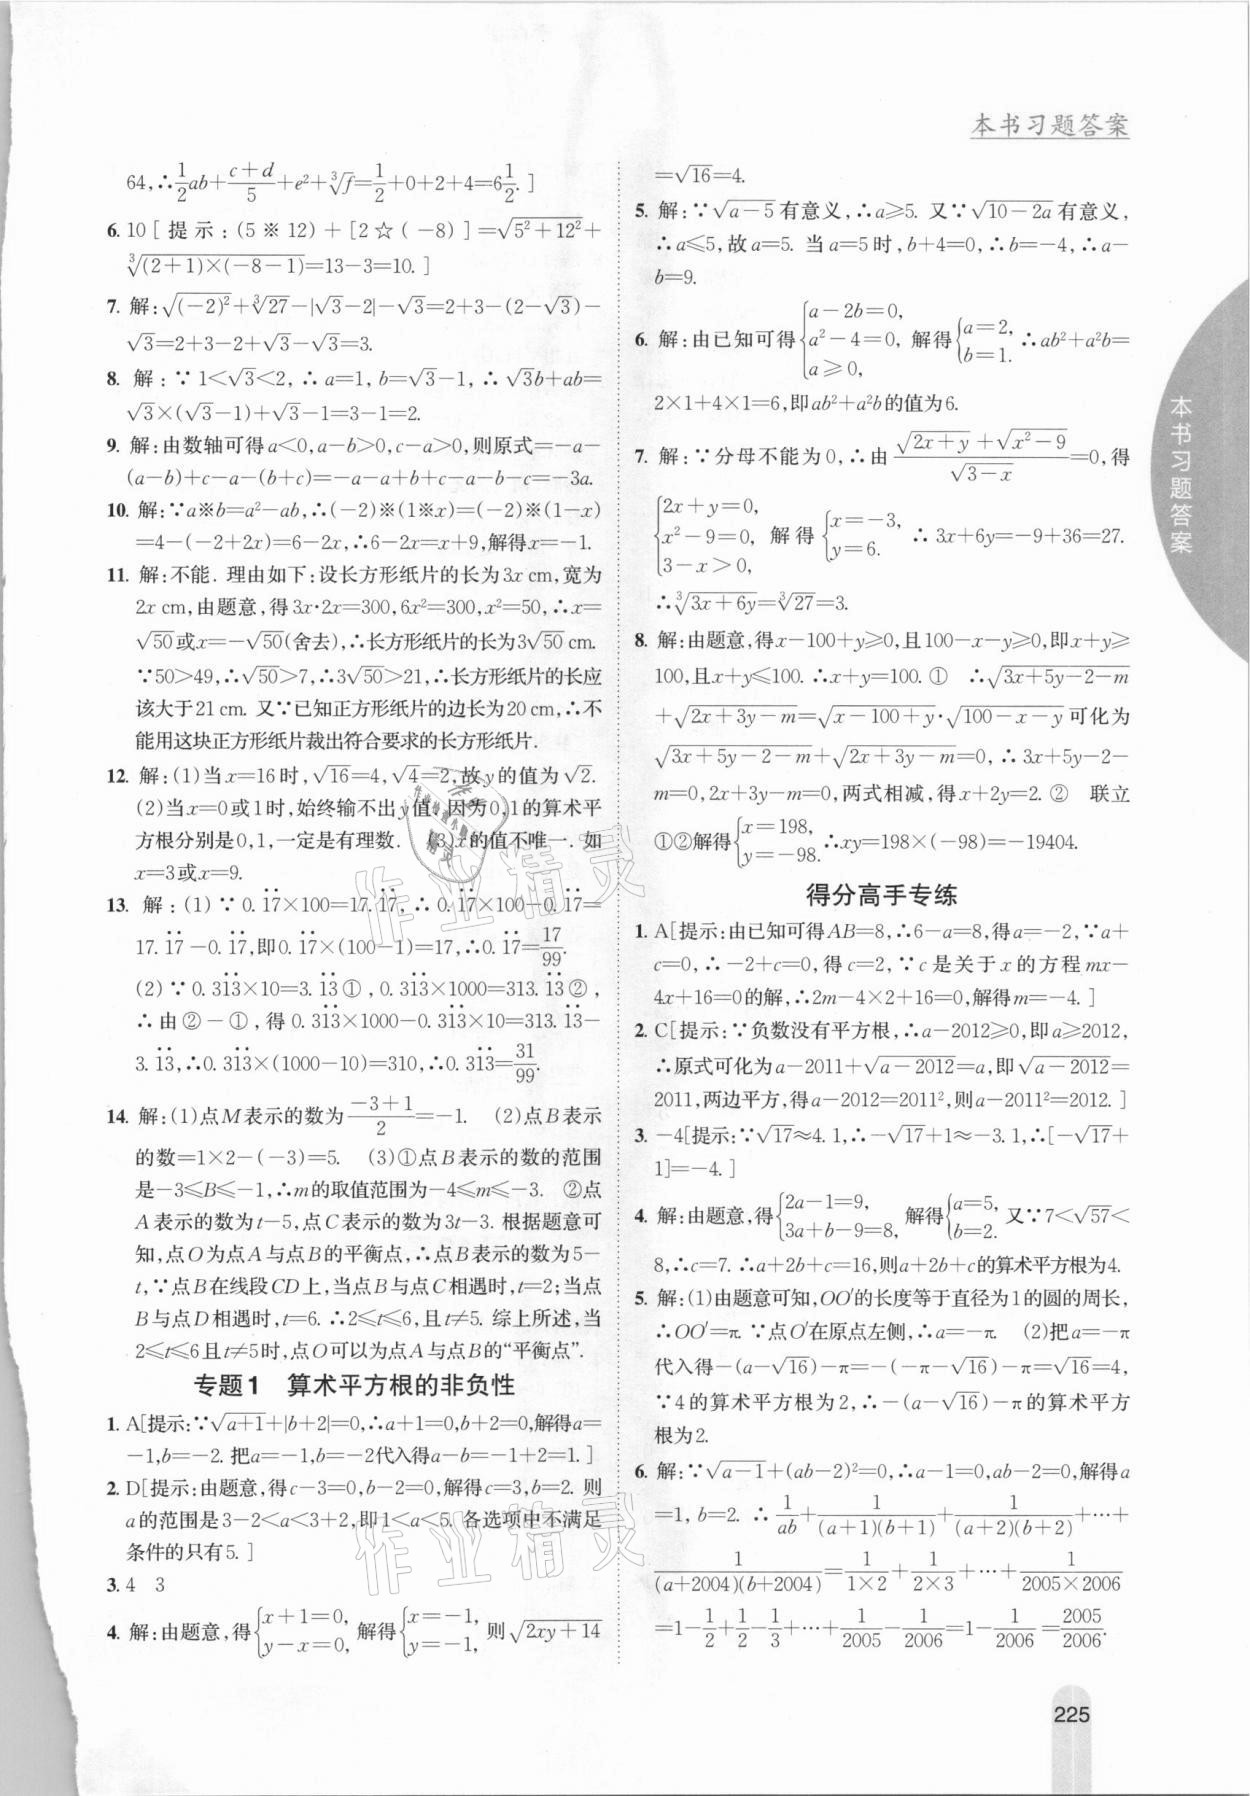 本书习题答案
64,∴1/2ab+(c+d)/5+e²+∛f=1/2+0+2+4=6 1/2.]
6. 10[提示:(5※12)+[2☆(-8)]=√(5²+12²)+
∛((2+1)×(-8-1))=13-3=10.]
7. 解:√((-2)²)+∛27-|√3-2|-√3=2+3-(2-√3)-
√3=2+3-2+√3-√3=3.
8. 解:∵1<√3<2,∴a=1,b=√3-1,∴√3b+ab=
√3×(√3-1)+√3-1=3-1=2.
9. 解:由数轴可得a<0,a-b>0,c-a>0,则原式=-a-
(a-b)+c-a-(b+c)=-a-a+b+c-a-b-c=-3a.
10. 解:∵a※b=a²-ab,∴(-2)※(1※x)=(-2)※(1-x)
=4-(-2+2x)=6-2x,∴6-2x=x+9,解得x=-1.
11. 解:不能. 理由如下:设长方形纸片的长为3x cm,宽为
2x cm,由题意,得3x·2x=300,6x²=300,x²=50,∴x=
√50或x=-√50(舍去),∴长方形纸片的长为3√50 cm.
∵50>49,∴√50>7,∴3√50>21,∴长方形纸片的长应
该大于21 cm. 又∵已知正方形纸片的边长为20 cm,∴不
能用这块正方形纸片裁出符合要求的长方形纸片.
12. 解:(1)当x=16时,√16=4,√4=2,故y的值为√2.
(2)当x=0或1时,始终输不出y值,因为0,1的算术平
方根分别是0,1,一定是有理数. (3)x的值不唯一. 如
x=3或x=9.
13. 解:(1)∵0.1̇7̇×100=17.1̇7̇,∴0.1̇7̇×100-0.1̇7̇=
17.1̇7̇-0.1̇7̇,即0.1̇7̇×(100-1)=17,∴0.1̇7̇=17/99.
(2)∵0.31̇3̇×10=3.1̇3̇①,0.31̇3̇×1000=313.1̇3̇②,
∴由②-①,得0.31̇3̇×1000-0.31̇3̇×10=313.1̇3̇-
3.1̇3̇,∴0.31̇3̇×(1000-10)=310,∴0.31̇3̇=31/99.
14. 解:(1)点M表示的数为(-3+1)/2=-1. (2)点B表示
的数=1×2-(-3)=5. (3)①点B表示的数的范围
是-3≤B≤-1,∴m的取值范围为-4≤m≤-3. ②点
A表示的数为t-5,点C表示的数为3t-3. 根据题意可
知,点O为点A与点B的平衡点,∴点B表示的数为5-
t,∵点B在线段CD上,当点B与点C相遇时,t=2;当点
B与点D相遇时,t=6. ∴2≤t≤6,且t≠5. 综上所述,当
2≤t≤6且t≠5时,点O可以为点A与点B的“平衡点”.
专题1 算术平方根的非负性
1. A[提示:∵√(a+1)+|b+2|=0,∴a+1=0,b+2=0,解得a=
-1,b=-2. 把a=-1,b=-2代入得a-b=-1+2=1.]
2. D[提示:由题意,得c-3=0,b-2=0,解得c=3,b=2. 则
a的范围是3-2<a<3+2,即1<a<5. 各选项中不满足
条件的只有5.]
3. 4 3
4. 解:由题意,得{x+1=0, y-x=0, 解得{x=-1, y=-1, 则√(2xy+14)
=√16=4.
5. 解:∵√(a-5)有意义,∴a≥5. 又∵√(10-2a)有意义,
∴a≤5,故a=5. 当a=5时,b+4=0,∴b=-4,∴a-
b=9.
6. 解:由已知可得{a-2b=0, a²-4=0, a≥0, 解得{a=2, b=1. ∴ab²+a²b=
2×1+4×1=6,即ab²+a²b的值为6.
7. 解:∵分母不能为0,∴由(√(2x+y)+√(x²-9))/√(3-x)=0,得
{2x+y=0, x²-9=0, 3-x>0, 解得{x=-3, y=6. ∴3x+6y=-9+36=27.
∴∛(3x+6y)=∛27=3.
8. 解:由题意,得x-100+y≥0,且100-x-y≥0,即x+y≥
100,且x+y≤100. ∴x+y=100. ① ∴√(3x+5y-2-m)
+√(2x+3y-m)=√(x-100+y)·√(100-x-y)可化为
√(3x+5y-2-m)+√(2x+3y-m)=0,∴3x+5y-2-
m=0,2x+3y-m=0,两式相减,得x+2y=2. ② 联立
①②解得{x=198, y=-98. ∴xy=198×(-98)=-19404.
得分高手专练
1. A[提示:由已知可得AB=8,∴6-a=8,得a=-2,∵a+
c=0,∴-2+c=0,得c=2,∵c是关于x的方程mx-
4x+16=0的解,∴2m-4×2+16=0,解得m=-4.]
2. C[提示:∵负数没有平方根,∴a-2012≥0,即a≥2012,
∴原式可化为a-2011+√(a-2012)=a,即√(a-2012)=
2011,两边平方,得a-2012=2011²,则a-2011²=2012.]
3. -4[提示:∵√17≈4.1,∴-√17+1≈-3.1,∴[-√17+
1]=-4.]
4. 解:由题意,得{2a-1=9, 3a+b-9=8, 解得{a=5, b=2. 又∵7<√57<
8,∴c=7. ∴a+2b+c=16,则a+2b+c的算术平方根为4.
5. 解:(1)由题意可知,OO′的长度等于直径为1的圆的周长,
∴OO′=π. ∵点O′在原点左侧,∴a=-π. (2)把a=-π
代入得-(a-√16)-π=-(-π-√16)-π=√16=4,
∵4的算术平方根为2,∴-(a-√16)-π的算术平方
根为2.
6. 解:∵√(a-1)+(ab-2)²=0,∴a-1=0,ab-2=0,解得a
=1,b=2. ∴1/ab+1/((a+1)(b+1))+1/((a+2)(b+2))+…+
1/((a+2004)(b+2004))=1/(1×2)+1/(2×3)+…+1/(2005×2006)
=1-1/2+1/2-1/3+…+1/2005-1/2006=1-1/2006=2005/2006.
本书习题答案
225
作业精灵
作业精灵